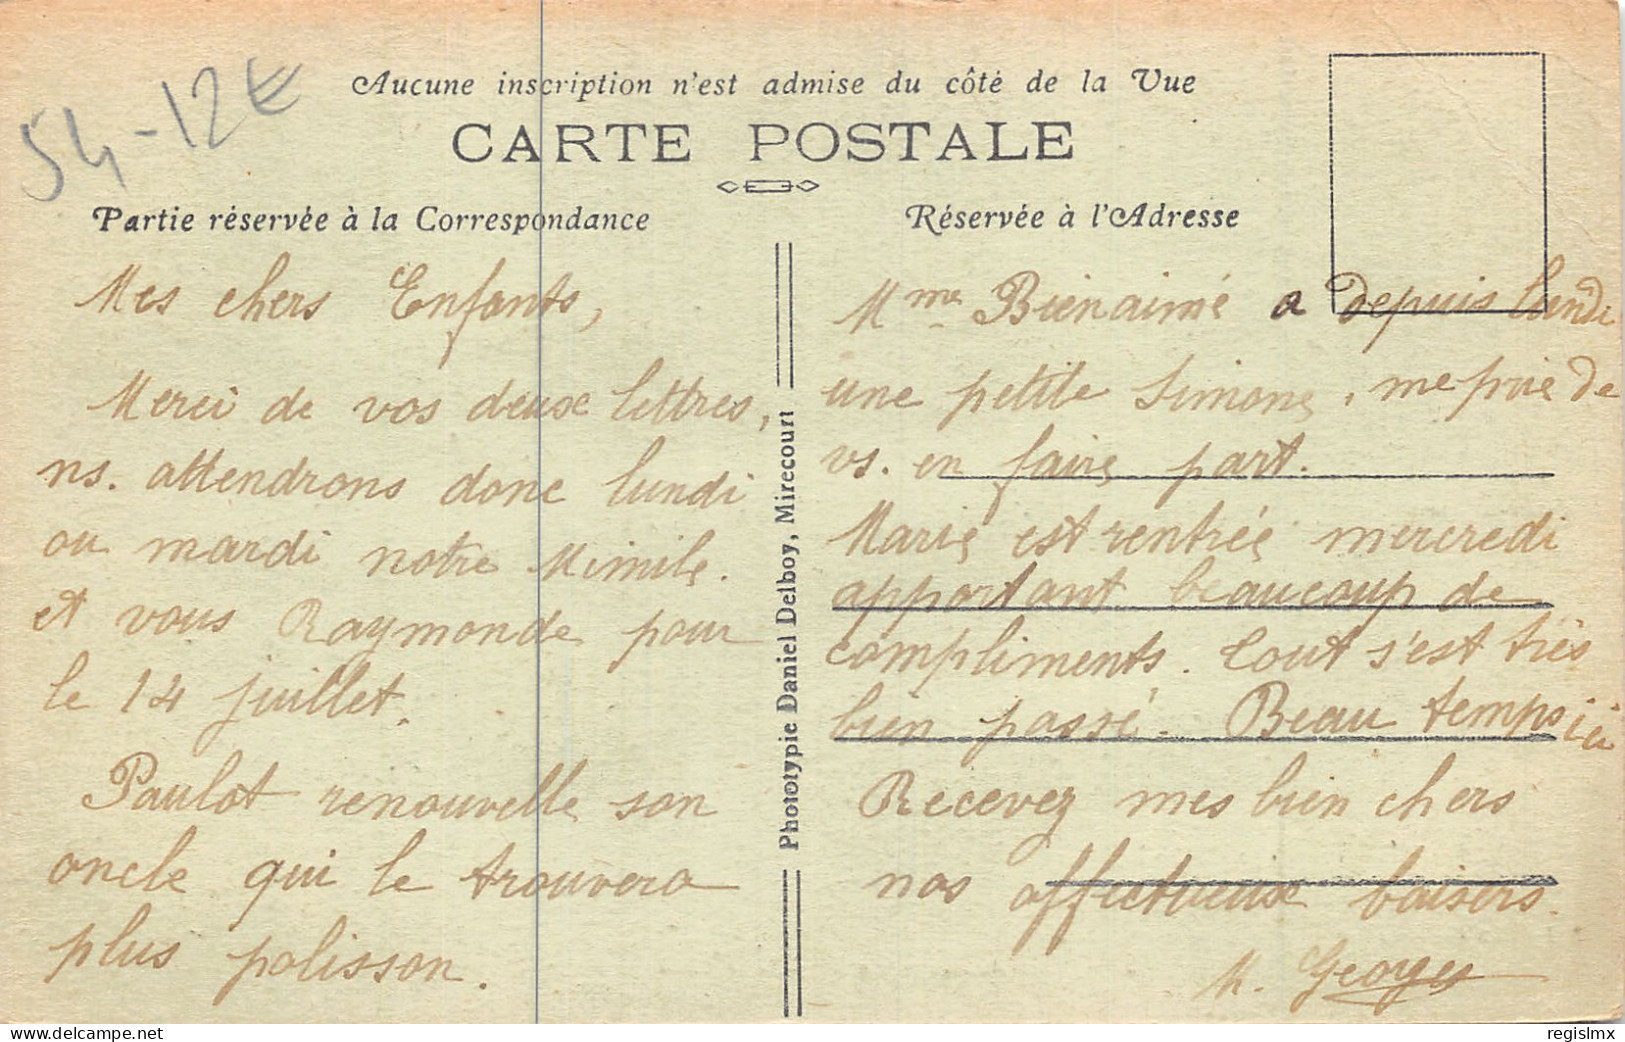 54-12€
Aucune inscription n'est admise du côté de la Vue
CARTE POSTALE
Partie réservée à la Correspondance
Réservée à l'Adresse
Mes chers Enfants,
Merci de vos deux lettres,
ns. attendrons donc lundi
ou mardi notre Mimile.
et vous Raymonde pour
le 14 juillet.
Paulot renouvelle son
oncle qui le trouvera
plus polisson.
Phototypie Daniel Delboy, Mirecourt
Mme Bienaimé a depuis lundi
une petite Simone, me prie de
vs. en faire part.
Marie est rentrée mercredi
apportant beaucoup de
compliments. Tout s'est très
bien passé. Beau temps ici
Recevez mes bien chers
nos affectueux baisers.
M. Georges
www.delcampe.net
regislmx